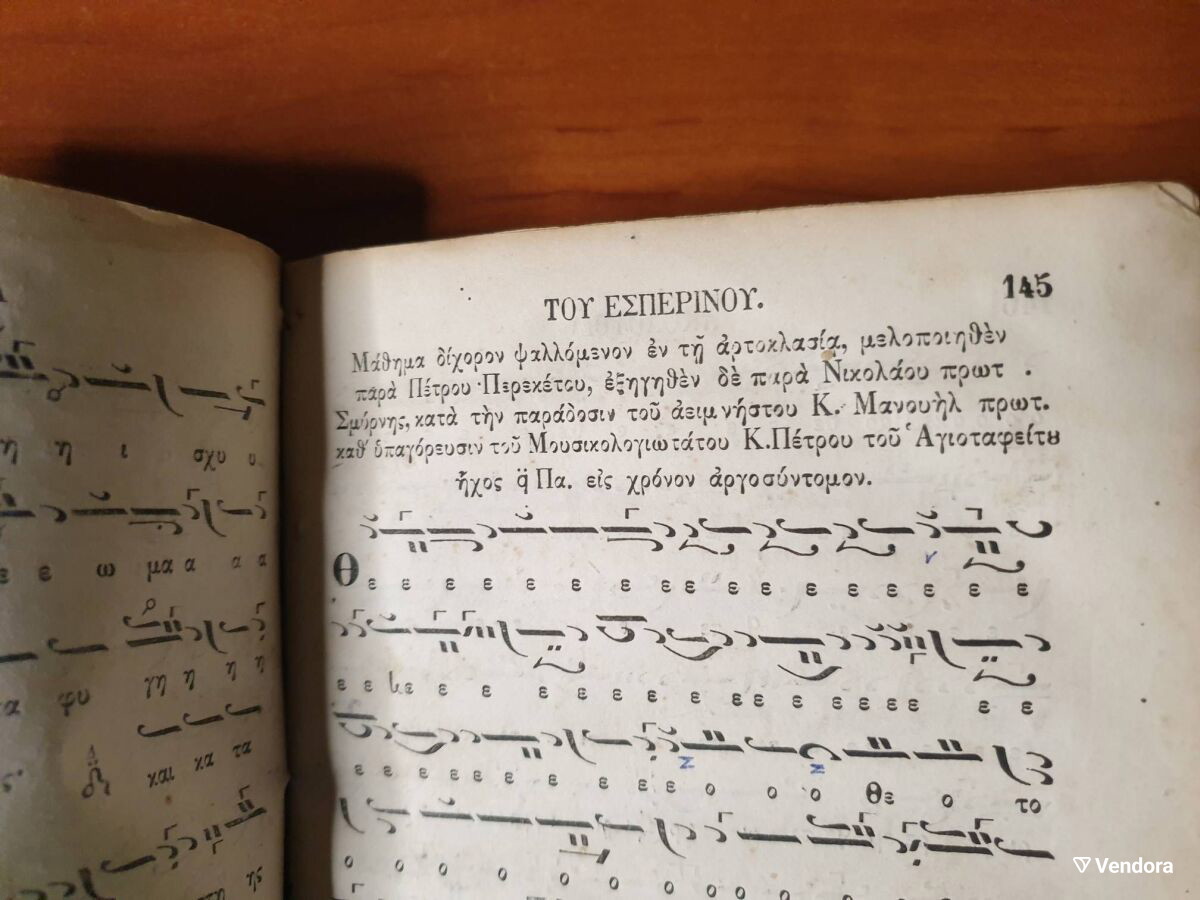 ΤΟΥ ΕΣΠΕΡΙΝΟΥ.
145
Μάθημα δίχορον ψαλλόμενον ἐν τῇ ἀρτοκλασίᾳ, μελοποιηθὲν
παρὰ Πέτρου Περεκέτου, ἐξηγηθὲν δὲ παρὰ Νικολάου πρωτ .
Σμύρνης, κατὰ τὴν παράδοσιν τοῦ ἀειμνήστου Κ. Μανουὴλ πρωτ.
καθ' ὑπαγόρευσιν τοῦ Μουσικολογιωτάτου Κ. Πέτρου τοῦ Ἁγιοταφείτȣ
ἦχος q̈ Πα. εἰς χρόνον ἀργοσύντομον.
Θ ε ε ε ε ε ε ε ε ε ε ε ε ε ε ε ε
ε ε ε ε ε ε ε ε ε ε ε ε ε ε ε ε ε ε ε
ε ε ε ε ε ε ε ε ε ε ο ο ο Θε ο το
ο ο ο ο ο ο ο ο ο ο ο ο
η η ι σχυ υ
ε ε ω μα α α α
α ψυ γη η η η
και κα τα
Vendora